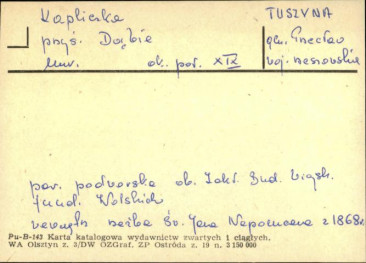 Kapliczka
przys. Dąbie
mur. ok. poł. XIX
TUSZYMA
gm. Przecław
woj. rzeszowskie
par. podworska ob. Zakł. Bud. Wiejsk.
fund. Wolskich
wewnątrz rzeźba Św. Jana Nepomucena z 1868r
Pu-B-143 Karta katalogowa wydawnictw zwartych i ciągłych.
WA Olsztyn z. 3/DW OZGraf. ZP Ostróda z. 19 n. 3 150 000